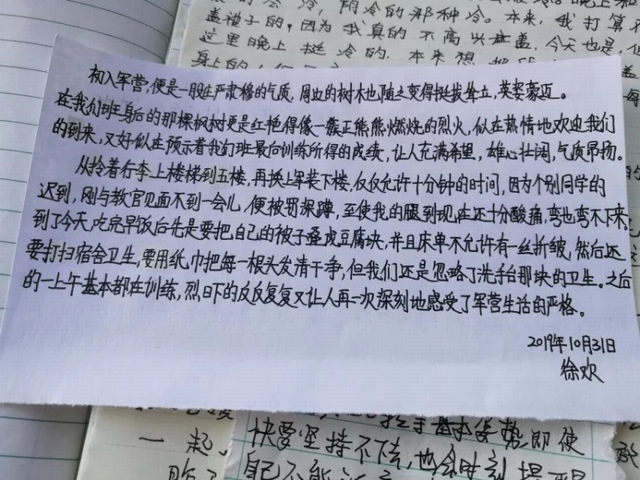 盖被子的,因为我真的不高兴盖,今天也是
这里晚上挺冷的.本来想
初入军营,便是一股庄严肃穆的气质,周边的树木也随之变得挺拔耸立,英姿豪迈。
在我们班身后的那棵枫树更是红艳得像一簇正熊熊燃烧的烈火,似在热情地欢迎我们
的到来,又好似在预示着我们班最后训练所得的成绩,让人充满希望,雄心壮阔,气质昂扬。
从拎着行李上楼梯到五楼,再换上军装下楼,仅仅允许十分钟的时间,因为个别同学的
迟到,刚与教官见面不到一会儿,便被罚深蹲,至使我的腿到现在还十分酸痛,弯也弯不下来。
到了今天,吃完早饭后先是要把自己的被子叠成豆腐块,并且床单不允许有一丝折皱,然后还
要打扫宿舍卫生,要用纸巾把每一根头发清干净,但我们还是忽略了洗手台那块的卫生。之后
的一上午基本都在训练,烈日下的反反复复又让人再一次深刻地感受了军营生活的严格。
2019年10月31日
徐欢
一起,
基本姿势即使
快要坚持不住,也会时刻提醒
自己不能